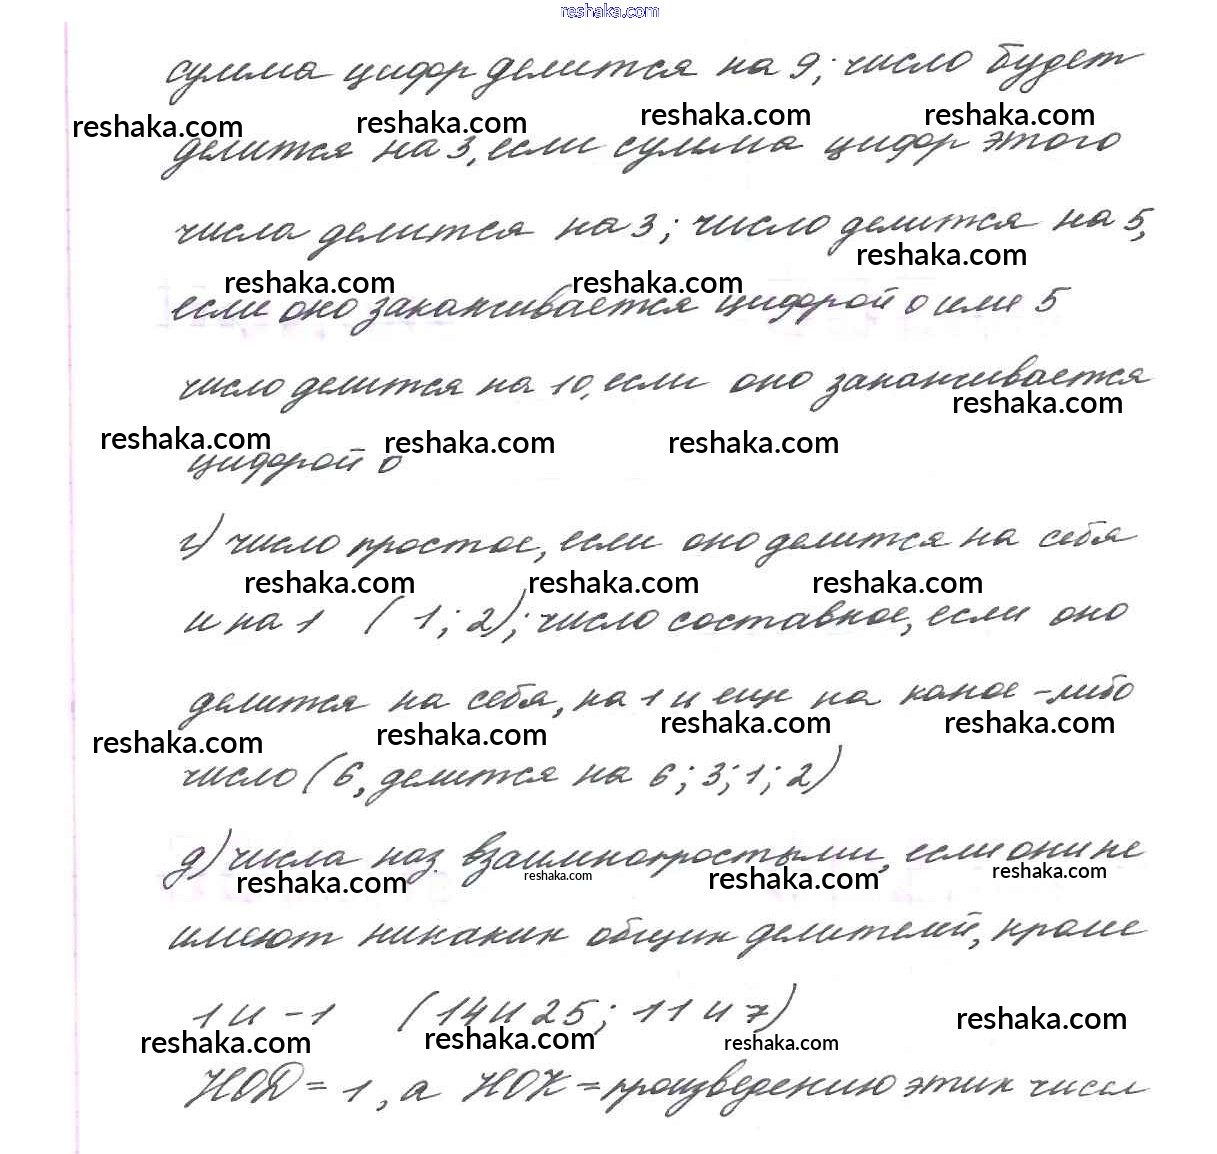 reshaka.com
сумма цифр делится на 9; число будет
reshaka.com reshaka.com reshaka.com reshaka.com
делится на 3, если сумма цифр этого
числа делится на 3; число делится на 5,
reshaka.com
reshaka.com reshaka.com
если оно заканчивается цифрой 0 или 5
число делится на 10, если оно заканчивается
reshaka.com
reshaka.com reshaka.com reshaka.com
цифрой 0
г) число простое, если оно делится на себя
reshaka.com reshaka.com reshaka.com
и на 1 (1; 2); число составное, если оно
делится на себя, на 1 и еще на какое-либо
reshaka.com reshaka.com reshaka.com reshaka.com
число (6, делится на 6; 3; 1; 2)
д) числа наз. взаимнопростыми, если они не
reshaka.com reshaka.com reshaka.com reshaka.com
имеют никаких общих делителей, кроме
1 и -1 (14 и 25; 11 и 7)
reshaka.com reshaka.com reshaka.com reshaka.com
НОД = 1, а НОК = произведению этих чисел